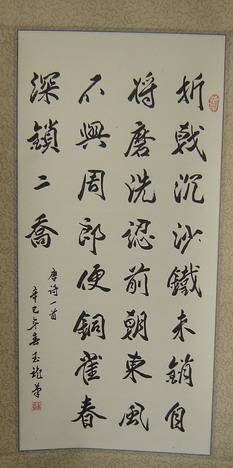 折戟沉沙鐵未銷自
将磨洗認前朝東風
不與周郎便銅雀春
深鎖二喬
唐诗一首
辛巳年春玉